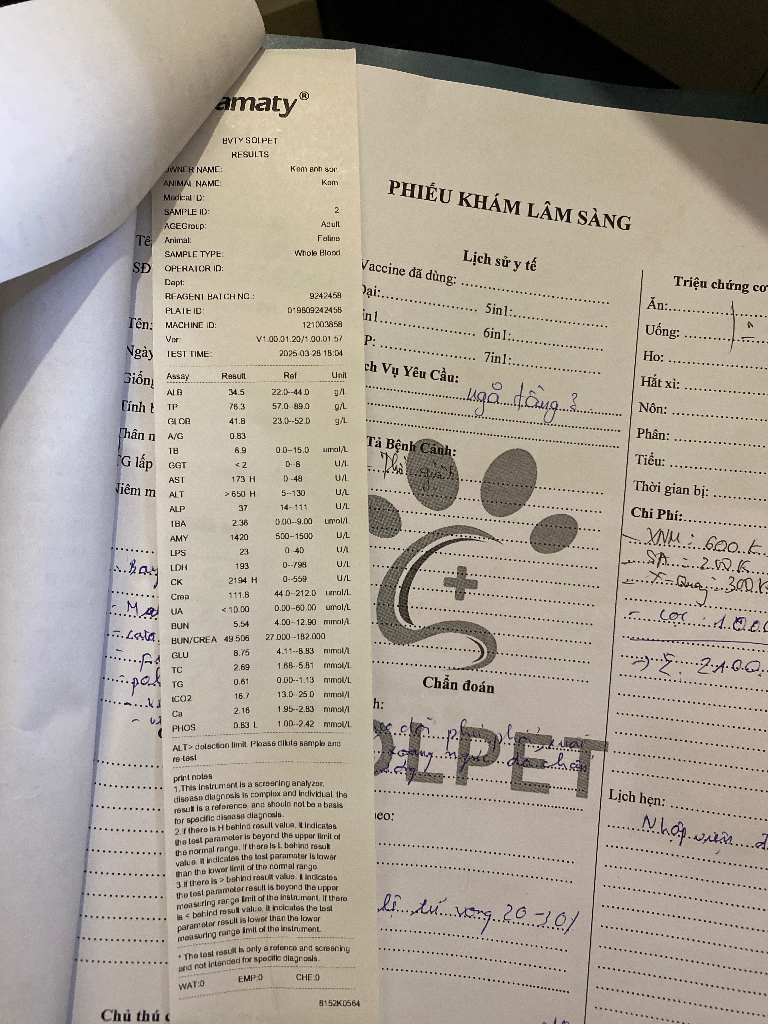 amaty®
BVTY SOLPET
RESULTS
OWNER NAME: Kem anh son
ANIMAL NAME: Kem
Medical ID:
SAMPLE ID: 2
AGEGroup: Adult
Animal: Feline
SAMPLE TYPE: Whole Blood
OPERATOR ID:
Dept:
REAGENT BATCH NO.: 9242458
PLATE ID: 019809242458
MACHINE ID: 121003858
Ver: V1.00.01.20/1.00.01.57
TEST TIME: 2025-03-28 18:04
Assay Result Ref Unit
ALB 34.5 22.0--44.0 g/L
TP 76.3 57.0--89.0 g/L
GLOB 41.8 23.0--52.0 g/L
A/G 0.83
TB 6.9 0.0--15.0 umol/L
GGT <2 0--8 U/L
AST 173 H 0--48 U/L
ALT >650 H 5--130 U/L
ALP 37 14--111 U/L
TBA 2.36 0.00--9.00 umol/L
AMY 1420 500--1500 U/L
LPS 23 0--40 U/L
LDH 193 0--798 U/L
CK 2194 H 0--559 U/L
Crea 111.8 44.0--212.0 umol/L
UA <10.00 0.00--60.00 umol/L
BUN 5.54 4.00--12.90 mmol/L
BUN/CREA 49.506 27.000--182.000
GLU 8.75 4.11--8.83 mmol/L
TC 2.69 1.68--5.81 mmol/L
TG 0.61 0.00--1.13 mmol/L
tCO2 16.7 13.0--25.0 mmol/L
Ca 2.16 1.95--2.83 mmol/L
PHOS 0.63 L 1.00--2.42 mmol/L
ALT> detection limit. Please dilute sample and
re-test
print notes
1.This instrument is a screening analyzer,
disease diagnosis is complex and individual, the
result is a reference, and should not be a basis
for specific disease diagnosis.
2.If there is H behind result value, it indicates
the test parameter is beyond the upper limit of
the normal range. If there is L behind result
value, it indicates the test parameter is lower
than the lower limit of the normal range.
3.If there is > behind result value, it indicates
the test parameter result is beyond the upper
measuring range limit of the instrument. If there
is < behind result value, it indicates the test
parameter result is lower than the lower
measuring range limit of the instrument.
* The test result is only a refence and screening
and not intended for specific diagnosis.
WAT:0 EMP:0 CHE:0
8152K0564
PHIẾU KHÁM LÂM SÀNG
Tê
SĐ
Tên:
Ngày
Giống
Tính b
Thân n
G lấp
iêm m
Chủ thú c
Lịch sử y tế
Vaccine đã dùng:
ại:
5in1:
in1
6in1:
P:
7in1:
ch Vụ Yêu Cầu:
ngã tầng 3
Tả Bệnh Cảnh:
Chẩn đoán
h:
OLPET
eo:
lệ tử vong 20-30%
Triệu chứng cơ
Ăn:
Uống:
Ho:
Hắt xì:
Nôn:
Phân:
Tiểu:
Thời gian bị:
Chi Phí:
XNM: 600.K
SA: 200.K
X-Quang: 300K
cọc: 1.000
=> Σ: 2100
Lịch hẹn:
Nhập viện